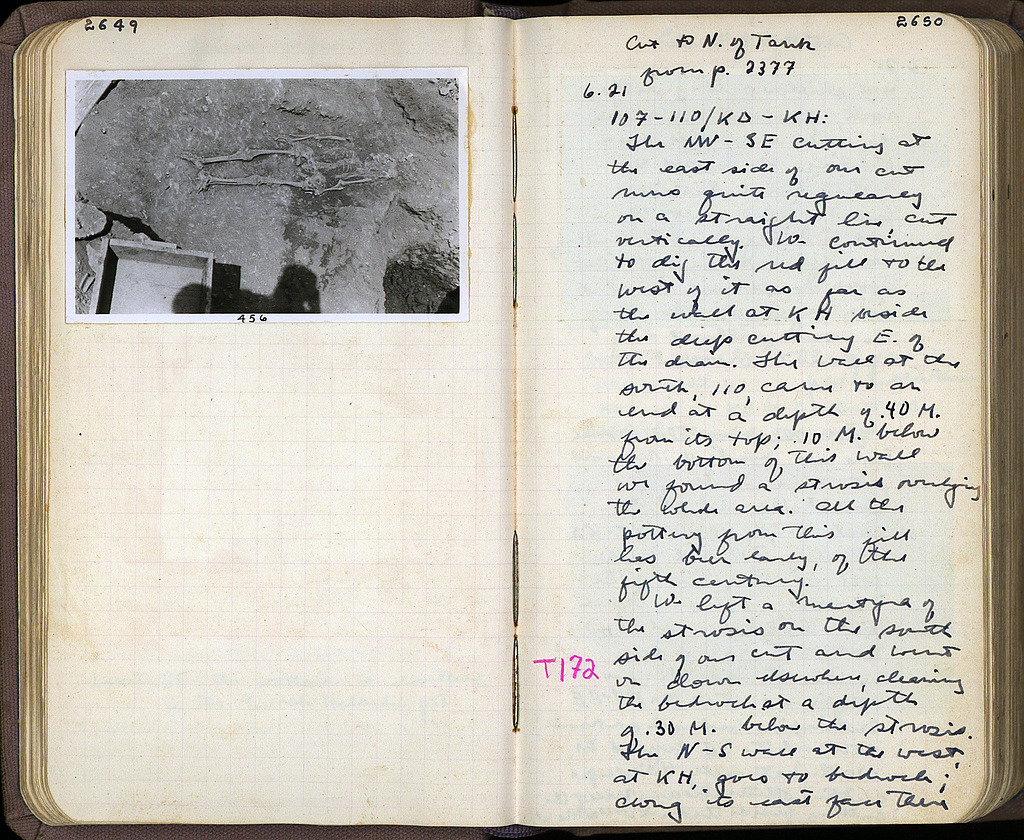 2649
456
2650
Cut to N. of Tank
from p. 2377
6.21
107-110/KD-KH:
The NW-SE cutting at
the east side of our cut
runs quite regularly
on a straight line, cut
vertically. We continued
to dig the red fill to the
west of it as far as
the wall at KH inside
the deep cutting E. of
the drain. The wall at the
south, 110, came to an
end at a depth of .40 M.
from its top; .10 M. below
the bottom of this wall
we found a strosis overlying
the whole area. All the
pottery from this fill
has been early, of the
fifth century.
We left a martyra of
the strosis on the south
side of our cut and went
on down elsewhere, clearing
the bedrock at a depth
of .30 M. below the strosis.
The N-S wall at the west,
at KH, goes to bedrock;
along its east face there
T172